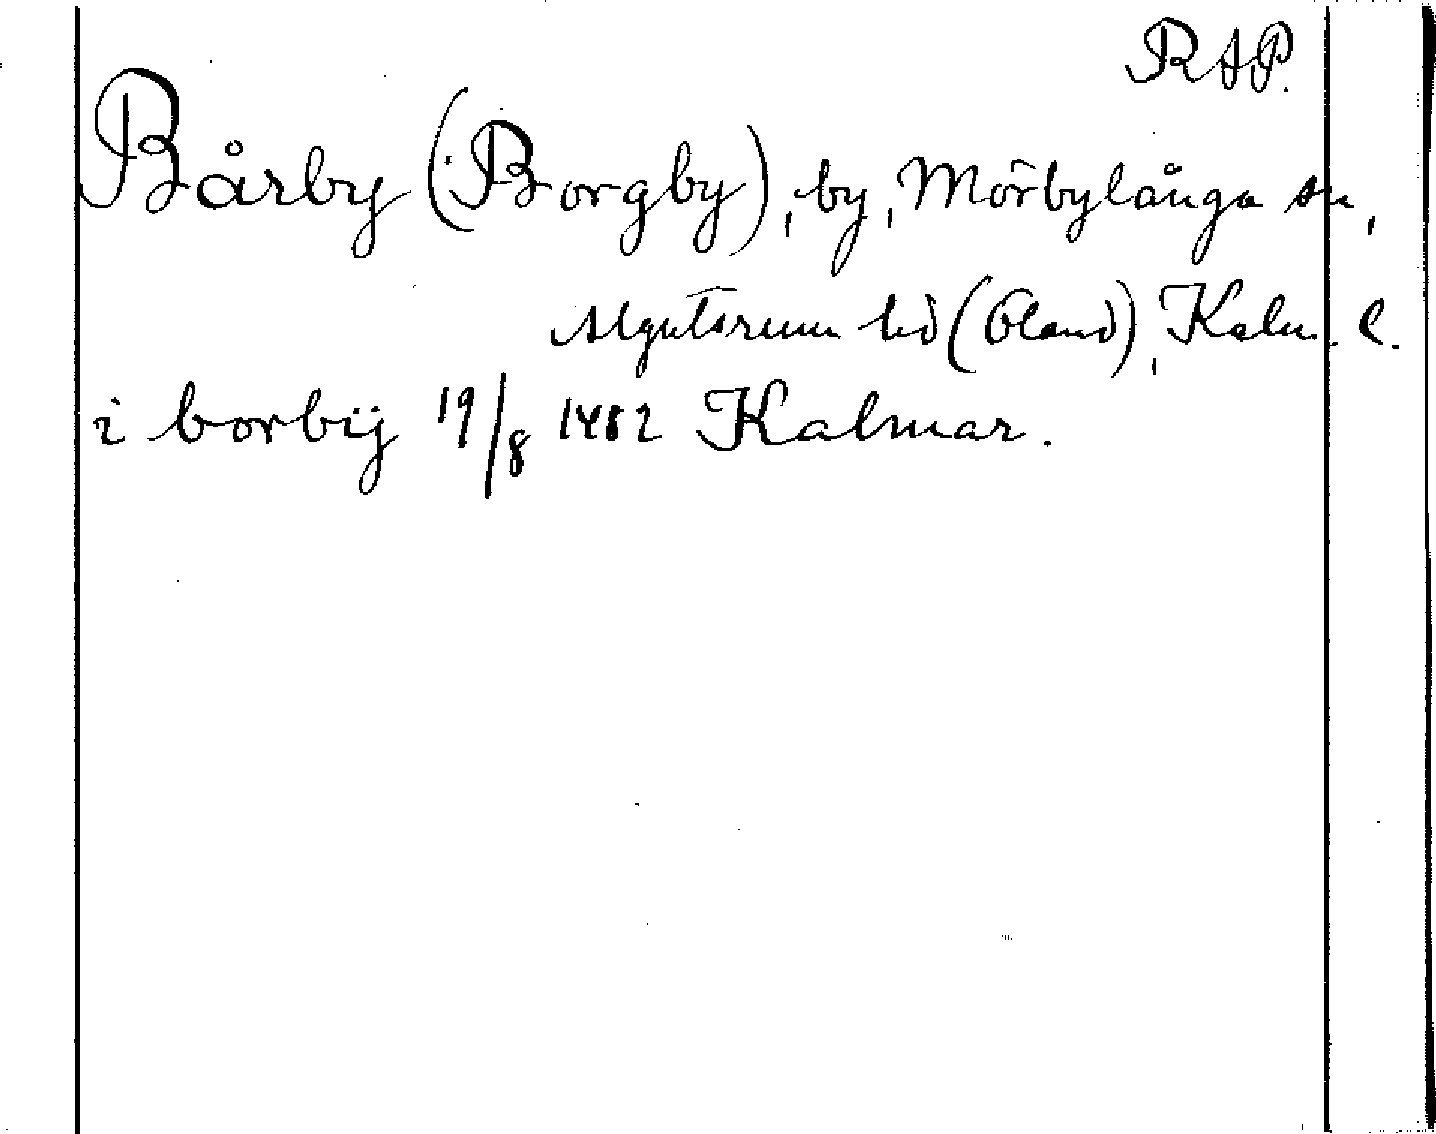 RAP.
Bårby (Borgby), by, Mörbylånga sn,
Algutsrum hd (Öland), Kalm. l.
i borbij 19/8 1482 Kalmar.